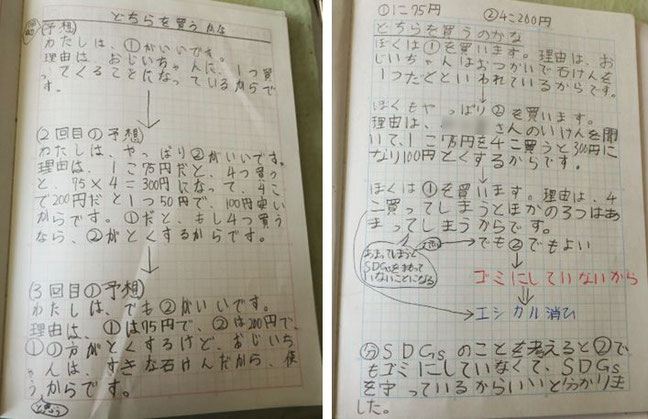 どちらを買うかな
(予想)
わたしは、①がいいです。
理由は、おじいちゃんに、1つ買
ってくることになっているからで
す。
(2回目の予想)
わたしは、やっぱり②がいいです。
理由は、1こ75円だと、4つ買う
と、75×4=300円になって、4こ
で200円だと1つ50円で、100円安い
からです。①だと、もし4つ買う
なら、②がとくするからです。
(3回目の予想)
わたしは、でも②がいいです。
理由は、①は75円で、②は200円で、
①の方がとくするけど、おじいち
ゃんは、すきな石けんだから、使
うからです。
①1こ75円 ②4こ200円
どちらを買うのかな
ぼくは①を買います。理由は、お
じいちゃんはおつかいで石けんを
1つたとといわれているからです。
ぼくもやっぱり②を買います。
理由は、 さんのいけんを聞
いて、1こ75円を4こ買うと300円に
なり100円とくするからです。
ぼくは①を買います。理由は、4
こ買ってしまうとほかの3つはあ
まってしまうからです。
でも②でもよい
あまってしまうと
SDGsをまもって
いないことになる
ゴミにしていないから
エシカル消ひ
分 SDGsのことを考えると②で
もゴミにしていなくて、SDGs
を守っているからいいと分かりま
した。